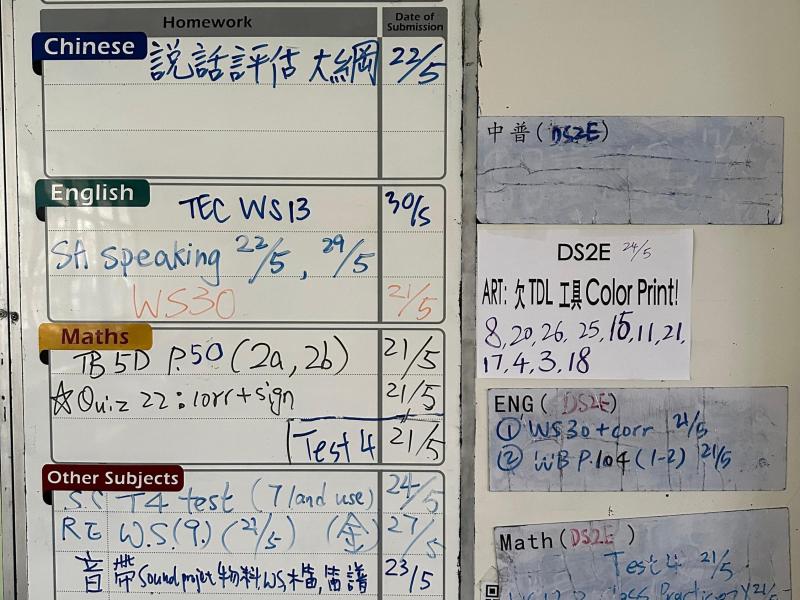 Homework Date of Submission
Chinese 説話評估 大綱 22/5
English TEC WS13 30/5
SA speaking 22/5, 29/5
WS30 21/5
Maths TB 5D P.50 (2a, 2b) 21/5
☆Quiz 22: corr+sign 21/5
Test 4 21/5
Other Subjects
S.S T4 test (7 land use) 24/5
RE W.S.(9.) (21/5) (金) 27/5
音 帶 Sound projet 物料, WS, 木笛, 笛譜 23/5
中普(DS2E)
DS2E 24/5
ART: 欠 TDL 工具 Color Print!
8, 20, 26, 25, 15, 11, 21,
17, 4, 3, 18
ENG( DS2E)
① WS30+corr 21/5
② WB P.104 (1-2) 21/5
Math(DS2E )
Test 4 21/5
21/5